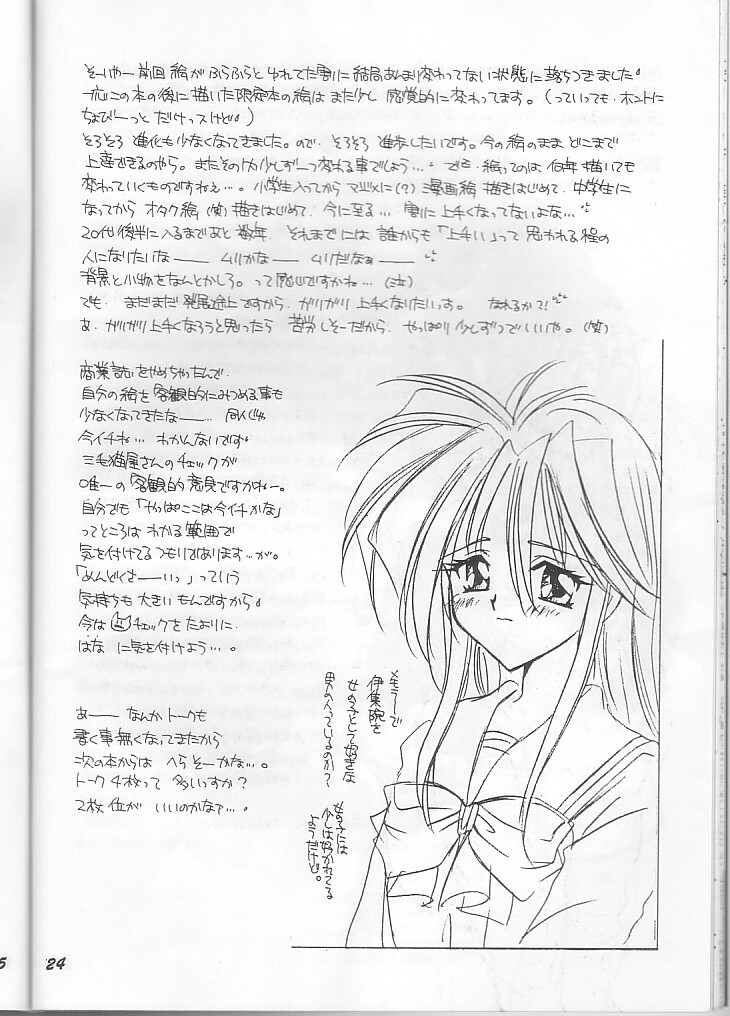 そーいやー前回絵がふらふらとゆれてた割に結局あんまり変わってない状態に落ちつきました。
一応この本の後に描いた限定本の絵はまた少し感覚的に変わってます。(っていっても・ホントに
ちょびーっとだけっスけど。)
そろそろ進化も少なくなってきました。ので・そろそろ進歩したいです。今の絵のままどこまで
上達できるのやら。またそのウチ少しずーつ変わる事でしょう…。でも・絵ってのは何年描いても
変わっていくものですねぇ…。小学生入ってからマジメに(?)漫画絵描きはじめて・中学生に
なってからオタク絵(笑)描きはじめて・今に至る…割に上手くなってないよな…。
20代後半に入るまであと数年・それまでには誰からも「上手い」って思われる程の
人になりたいなー ムリかなー ムリだなぁー
背景と小物をなんとかしろ。って感じですかね…(泣)
でも・まだまだ発展途上ですから・ガリガリ上手くなりたいっす。なれるか?!
あ・ガリガリ上手くなろうと思ったら 苦労しそーだから・やっぱり少しずつでいいや。(笑)
商業誌をやめちゃったんで
自分の絵を客観的にみつめる事も
少なくなってきたなー…同人じゃ
今イチね…わかんないです。
三毛猫屋さんのチェックが
唯一の客観的意見ですかねー。
自分でも「やっぱここは今イチかな」
ってところはわかる範囲で
気を付けてるつもりではあります…が。
「めんどくさーいっ」っていう
気持ちも大きいもんですから。
今はチェックをたよりに
はなに気を付けよう…。
あー なんかトークも
書く事無くなってきたから
次の本からはへらそーかな…。
トーク4枚って多いっすか?
2枚位がいいのかなァ…。
メモラーで
伊集院を
女の子として好きな
男の人っているのか?
女の子には
少しは好かれてる
ようだけど。
24
5